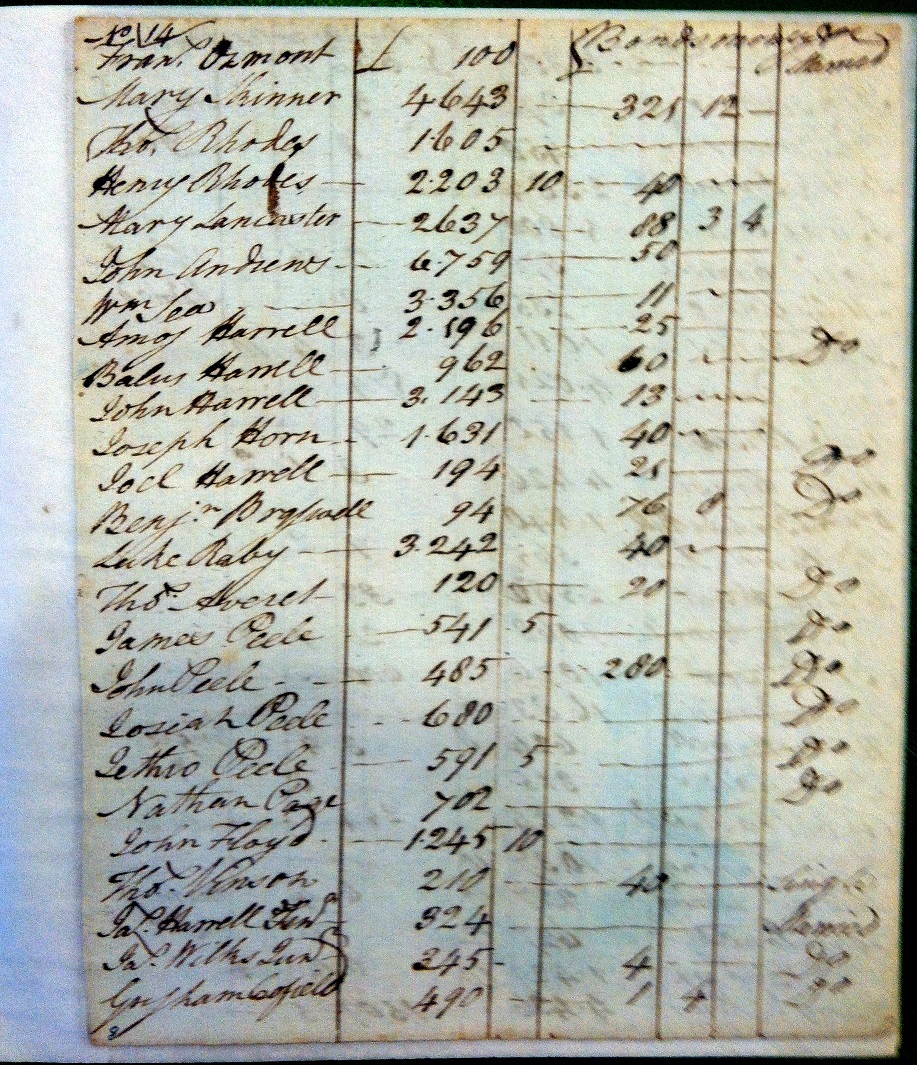 No 14
Fran. Ozmont £ 100 Bonds money &c Married
Mary Skinner 4643 321 12
Tho.s Rhodes 1605
Henry Rhodes 2203 10 40
Mary Lancaster 2637 88 3 4
John Andrews 6759 50
Wm Sea 3356 11
Amos Harrell 2196 25
Balus Harrell 962 60 Do
John Harrell 3143 13
Joseph Horn 1631 40
Joel Harrell 194 25 Do
Benj.n Braswell 94 76 8 Do
Luke Raby 3242 40
Tho.s Averet 120 20 Do
James Peele 541 5 Do
John Peele 485 280 Do
Josiah Peele 680 Do
Jethro Peele 591 5 Do
Nathan Page 702 Do
John Floyd 1245 10
Tho.s Vinson 210 40 Single
Ja.s Harrell 324 Married
Ja.s Wilks Jun.r 345 4 Do
Grisham Cofield 490 1 4 Do